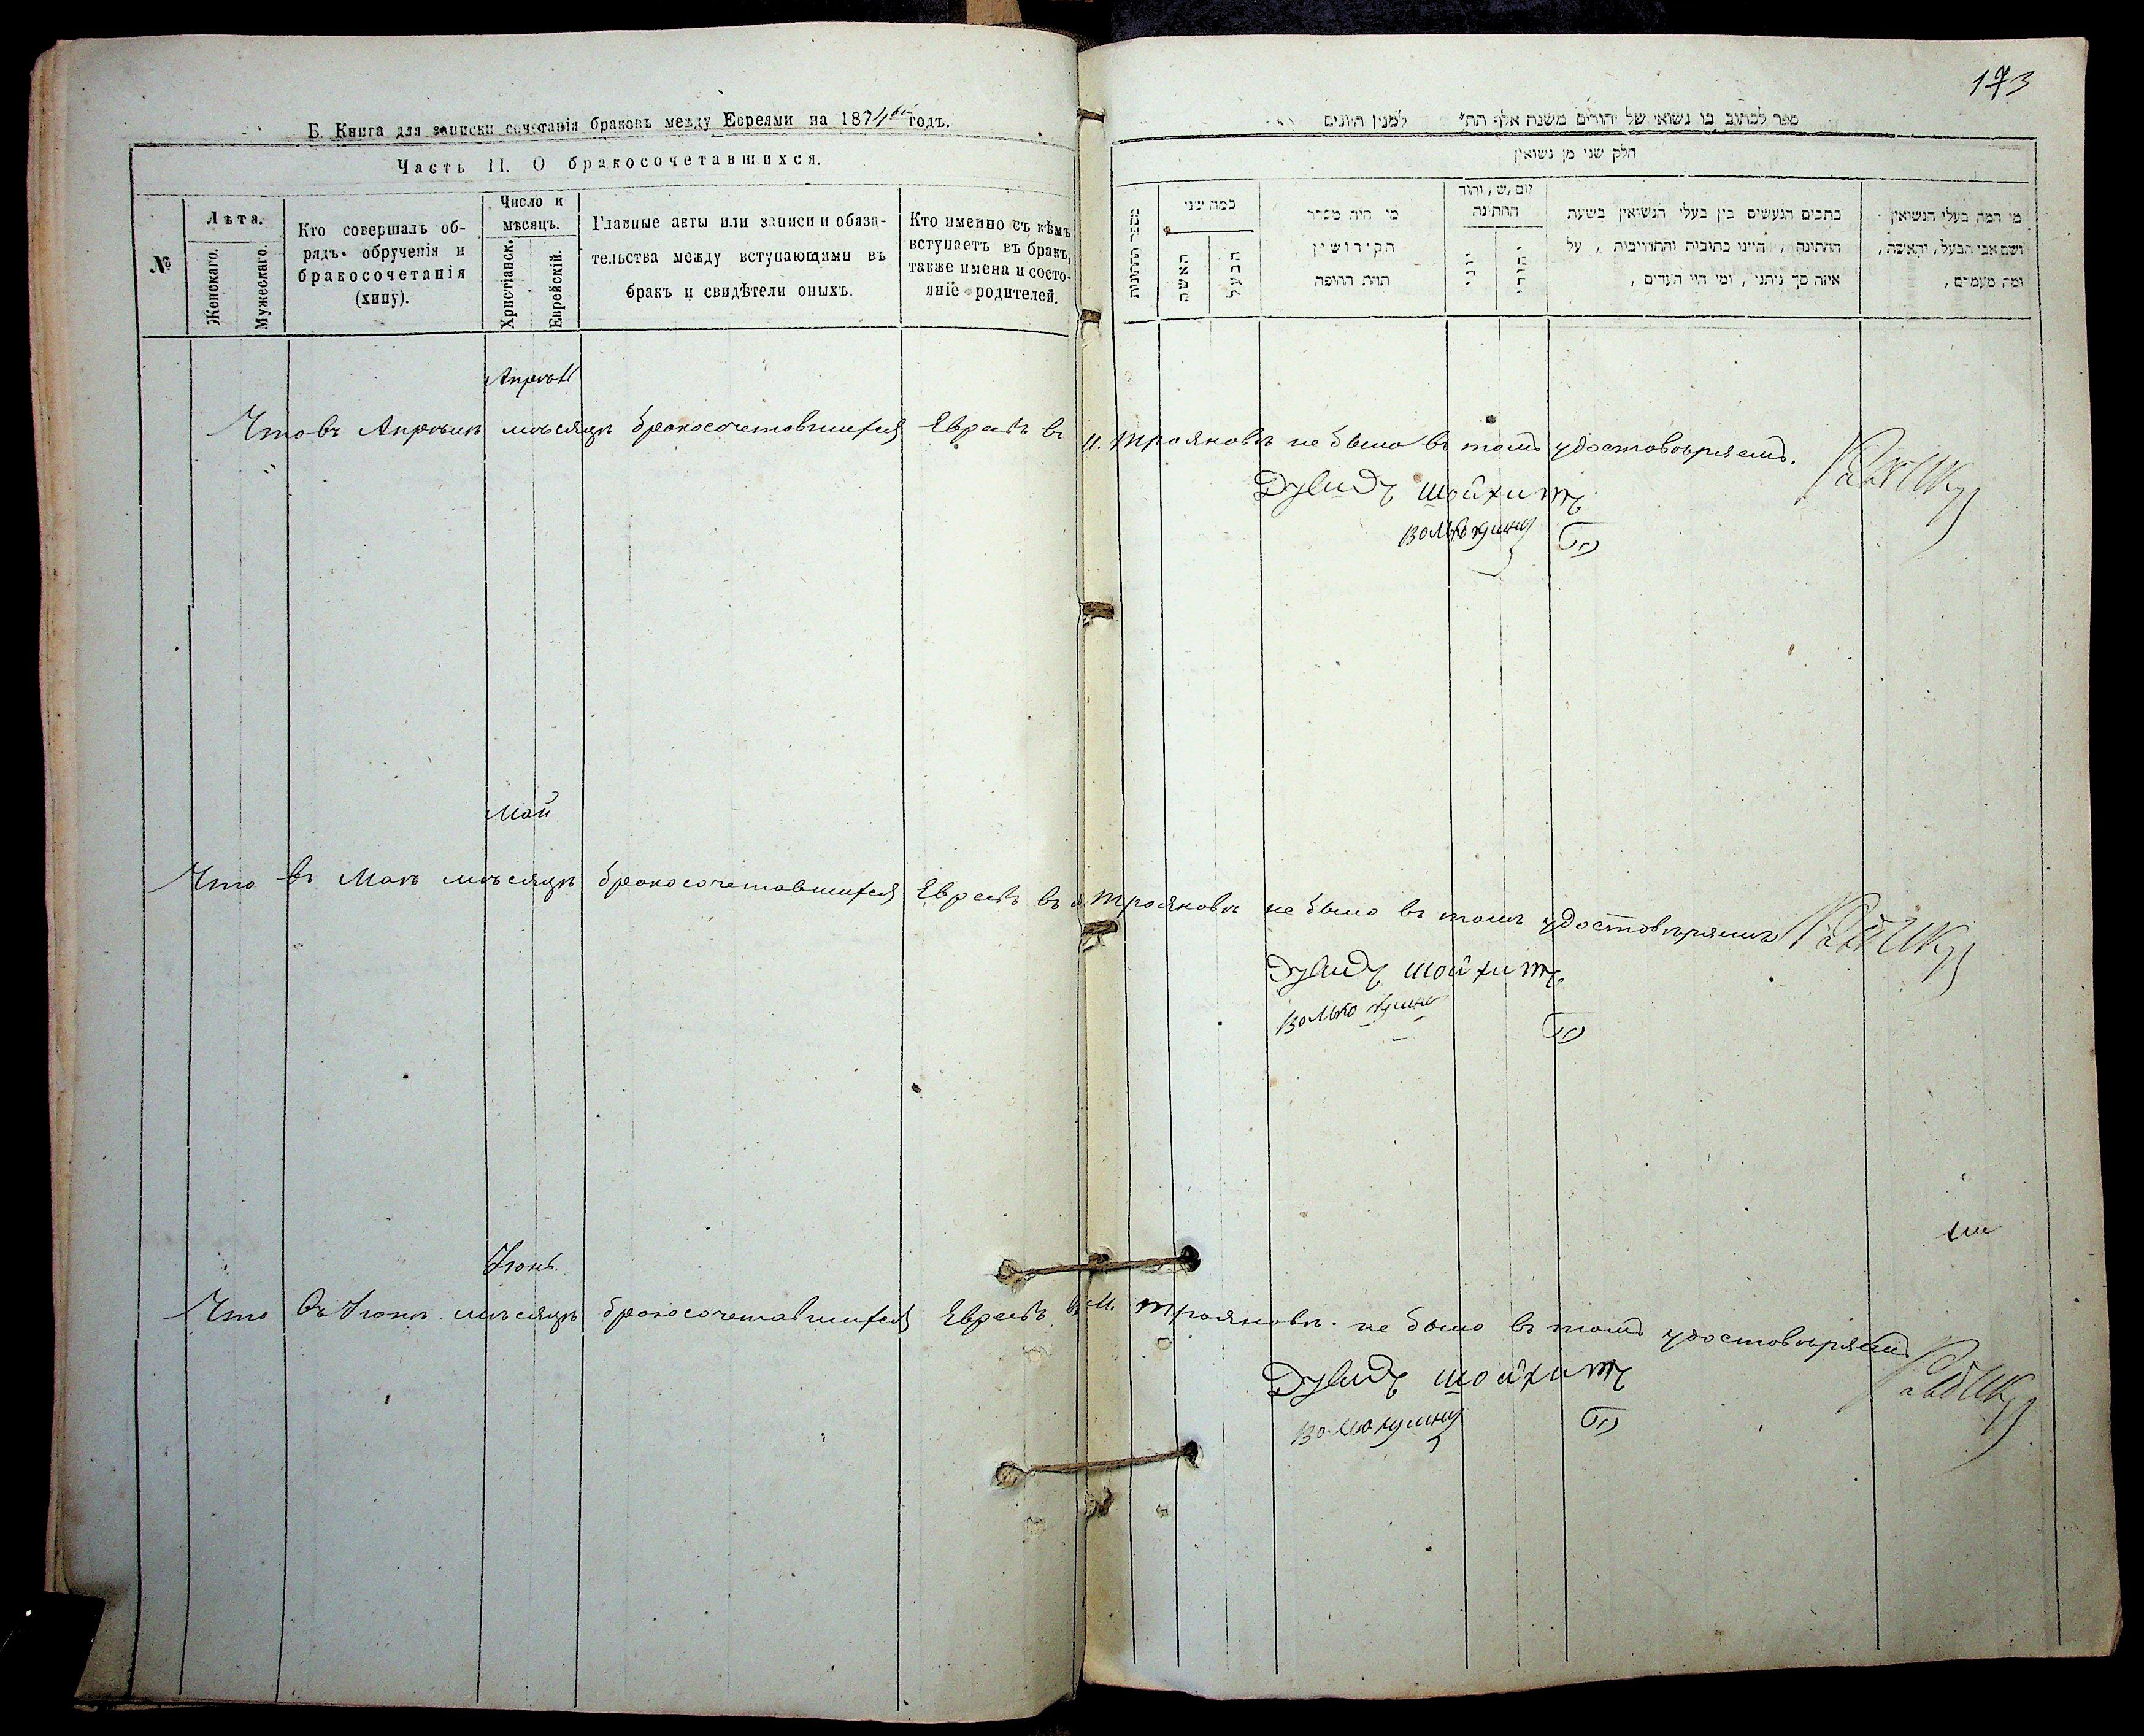 173
Б. Книга для записки сочетанія браковъ между Евреями на 1874ый годъ.
Часть II. О бракосочетавшихся.
№
Лѣта.
Женскаго.
Мужескаго.
Кто совершалъ об-
рядъ обрученія и
бракосочетанія
(хипу).
Число и
мѣсяцъ.
Христіанск.
Еврейскій.
Главные акты или записи и обяза-
тельства между вступающими въ
бракъ и свидѣтели оныхъ.
Кто именно съ кѣмъ
вступаетъ въ бракъ,
также имена и состо-
яніе родителей.
ספר לכתוב בו נשואי של יהודים משנת אלף הת״ למנין היונים
חלק שני מן נשואין
מספר החתונות
כמה שני
האשה
הבעל
מי היה מסדר
הקידושין
תחת החופה
החתונה
יוני
יהודי
כתבים הנעשים בין בעלי הנשואין בשעת
החתונה, היינו כתובות והתחייבות, על
איזה סך ניתני, ומי היו העדים,
מי המה בעלי הנשואין
ושם אבי הבעל, והאשה,
ומה מעמדם,
Апрѣль
Что въ Апрѣлѣ мѣсяцѣ бракосочетавшихся Евреевъ въ м. Трояновѣ не было въ томъ удостовѣряемъ.
Дувидъ Шойхитъ
Май
Что въ Маѣ мѣсяцѣ бракосочетавшихся Евреевъ въ м. Трояновѣ не было въ томъ удостовѣряемъ
Дувидъ Шойхитъ
Іюнь.
Что въ Іюнѣ мѣсяцѣ бракосочетавшихся Евреевъ въ м. Трояновѣ. не было въ томъ удостовѣряемъ
Дувидъ Шойхитъ